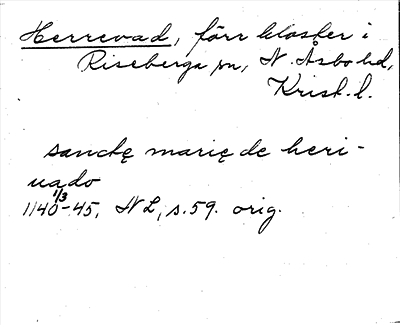 Herrevad, förr kloster i
Riseberga sn, N. Åsbo hd,
Krist. l.
sanctę marię de heri-
uado
1140-1/3 45, NL, s. 59. orig.